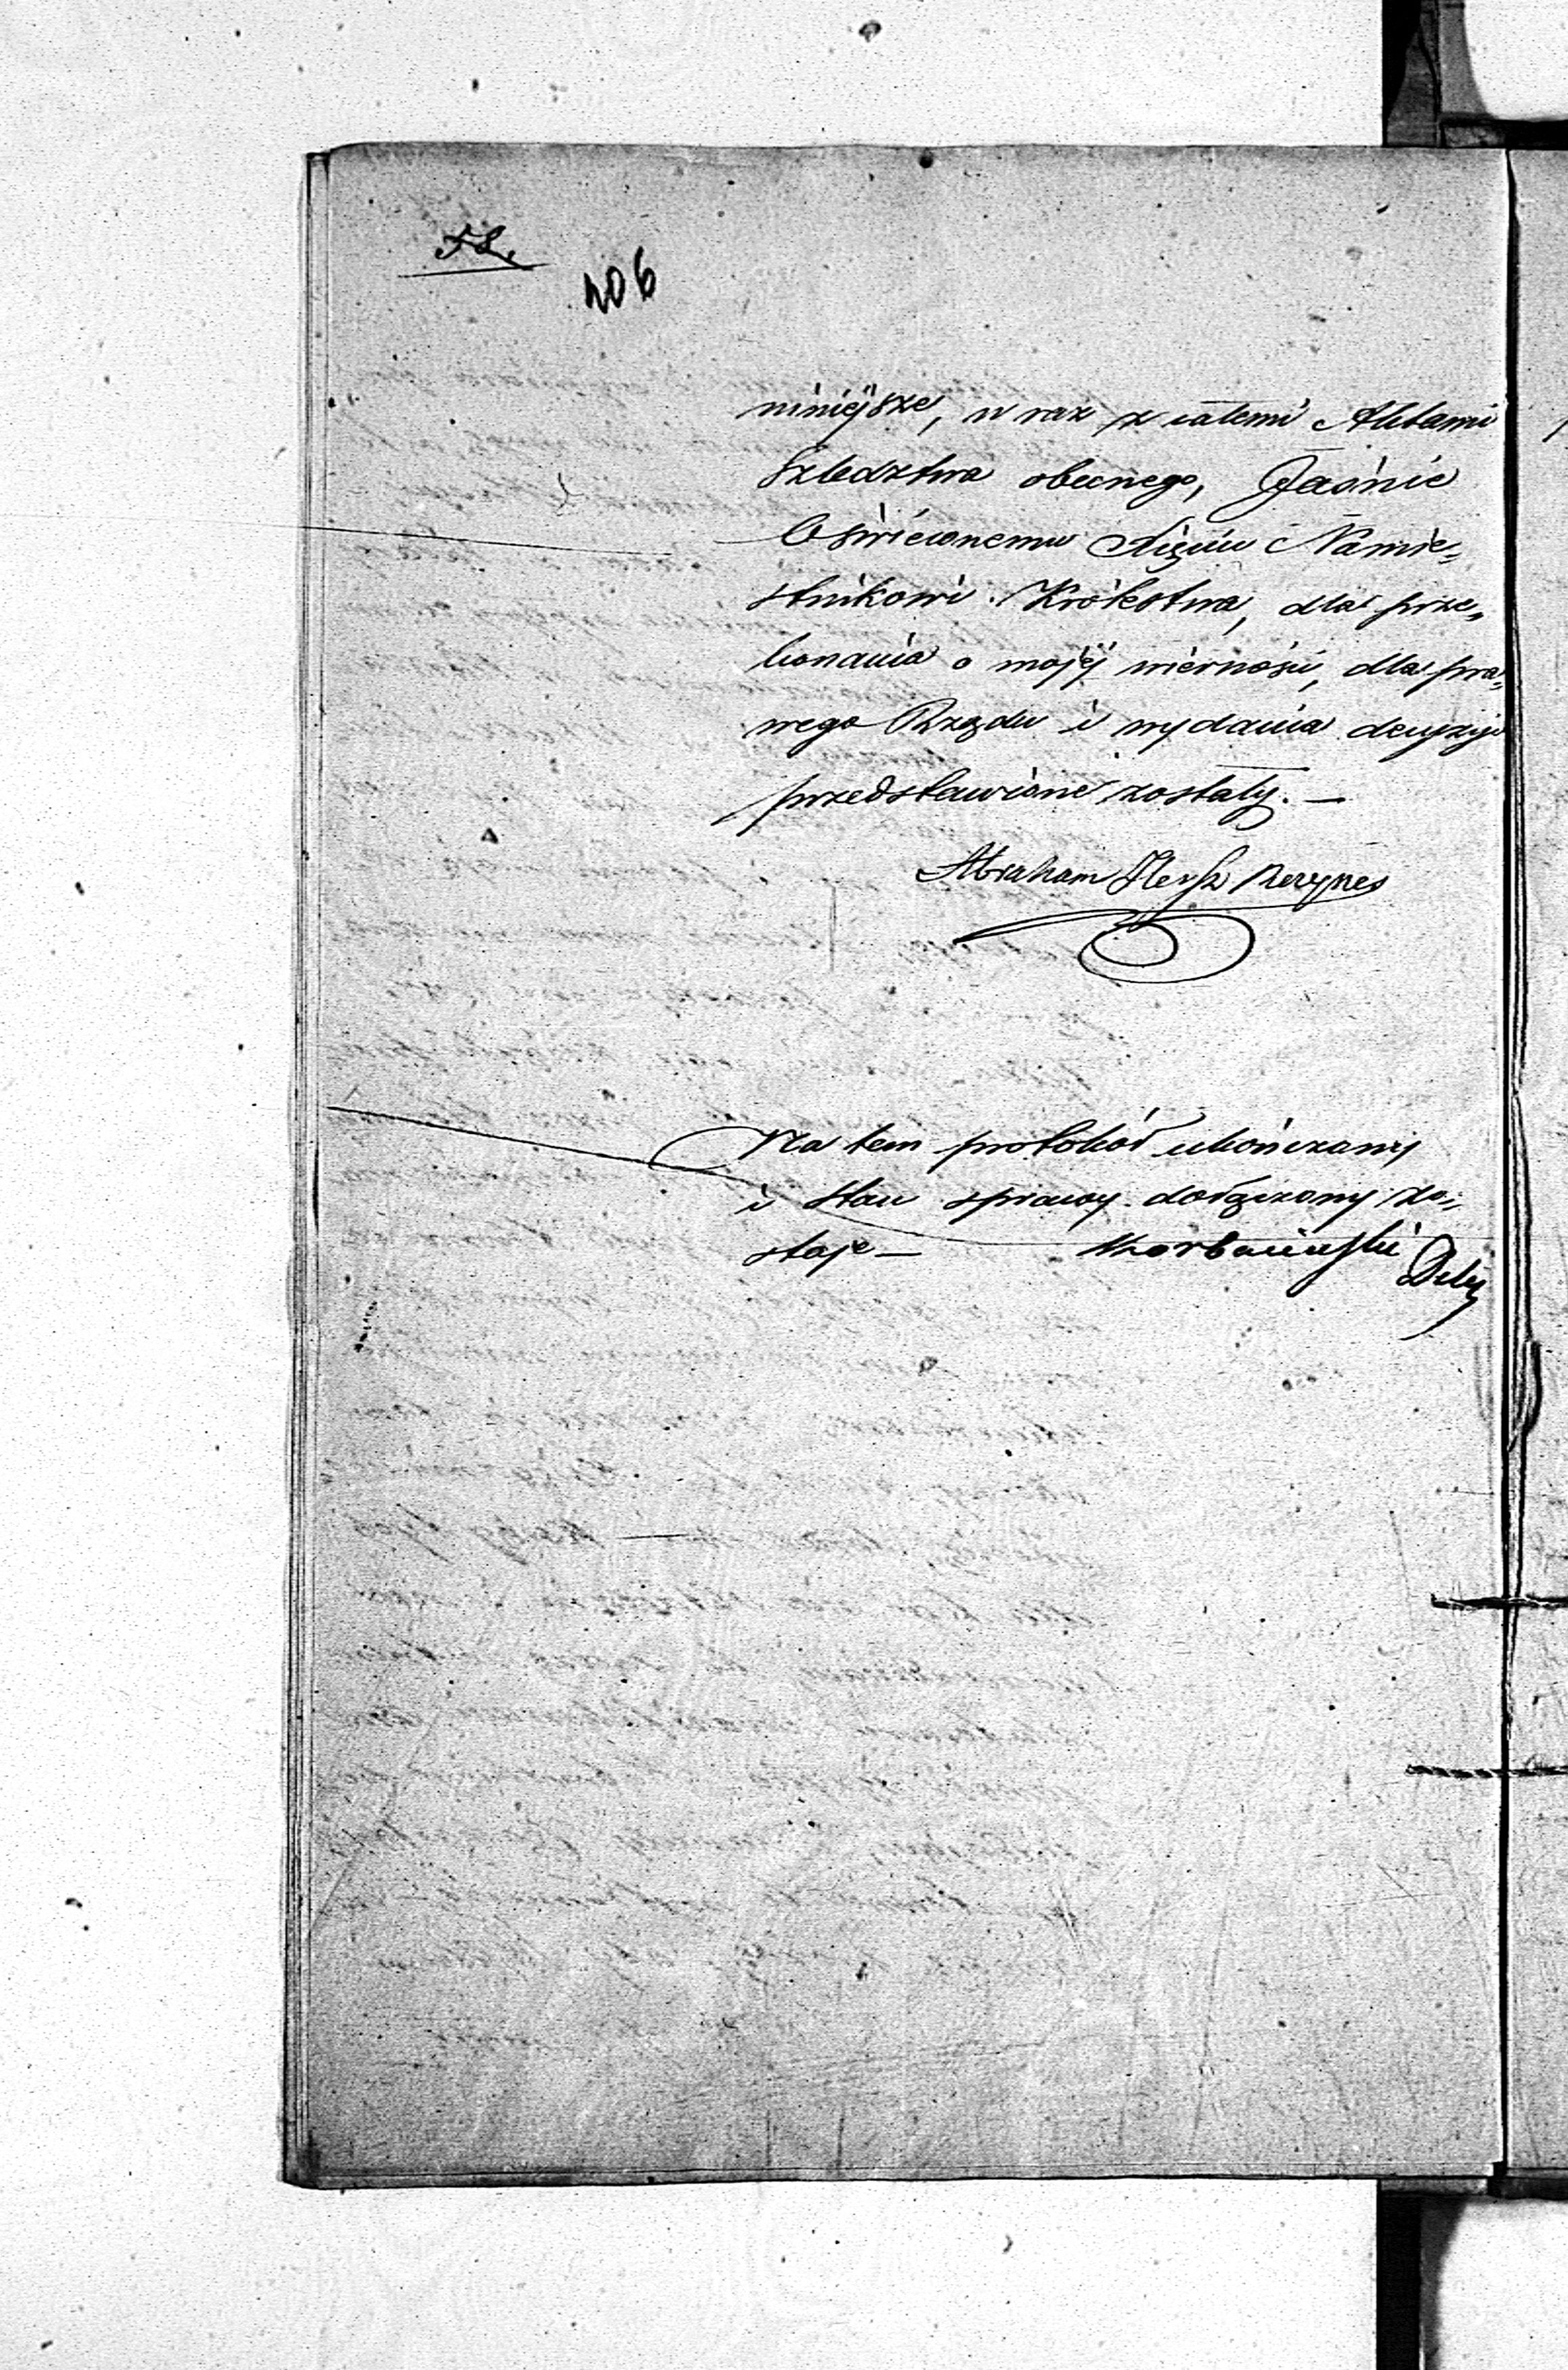 52.
406
niniejsze, w raz z całemi Aktami
Szledztwa obecnego, Jaśnie
Oświeconemu Xięciu Namie„
stnikowi Królestwa, dla prze„
konania o mojéj wierności, dla pra„
wego Rządu i wydania decyzyi
przedstawione zostały. —
Abraham Hersz
Na tem protokół ukończony
i stan sprawy dołączony zo„
staje —